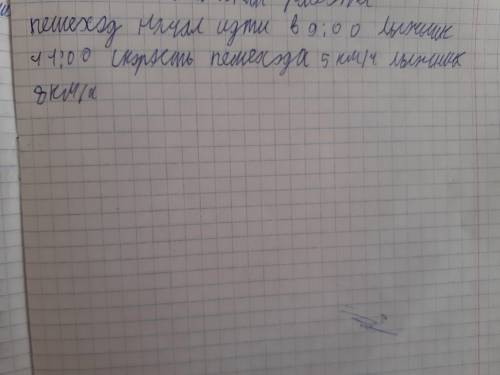 пешеход начал идти в 9:00 лыжник
11:00 скорость пешехода 5 км/ч лыжник
8 км/ч